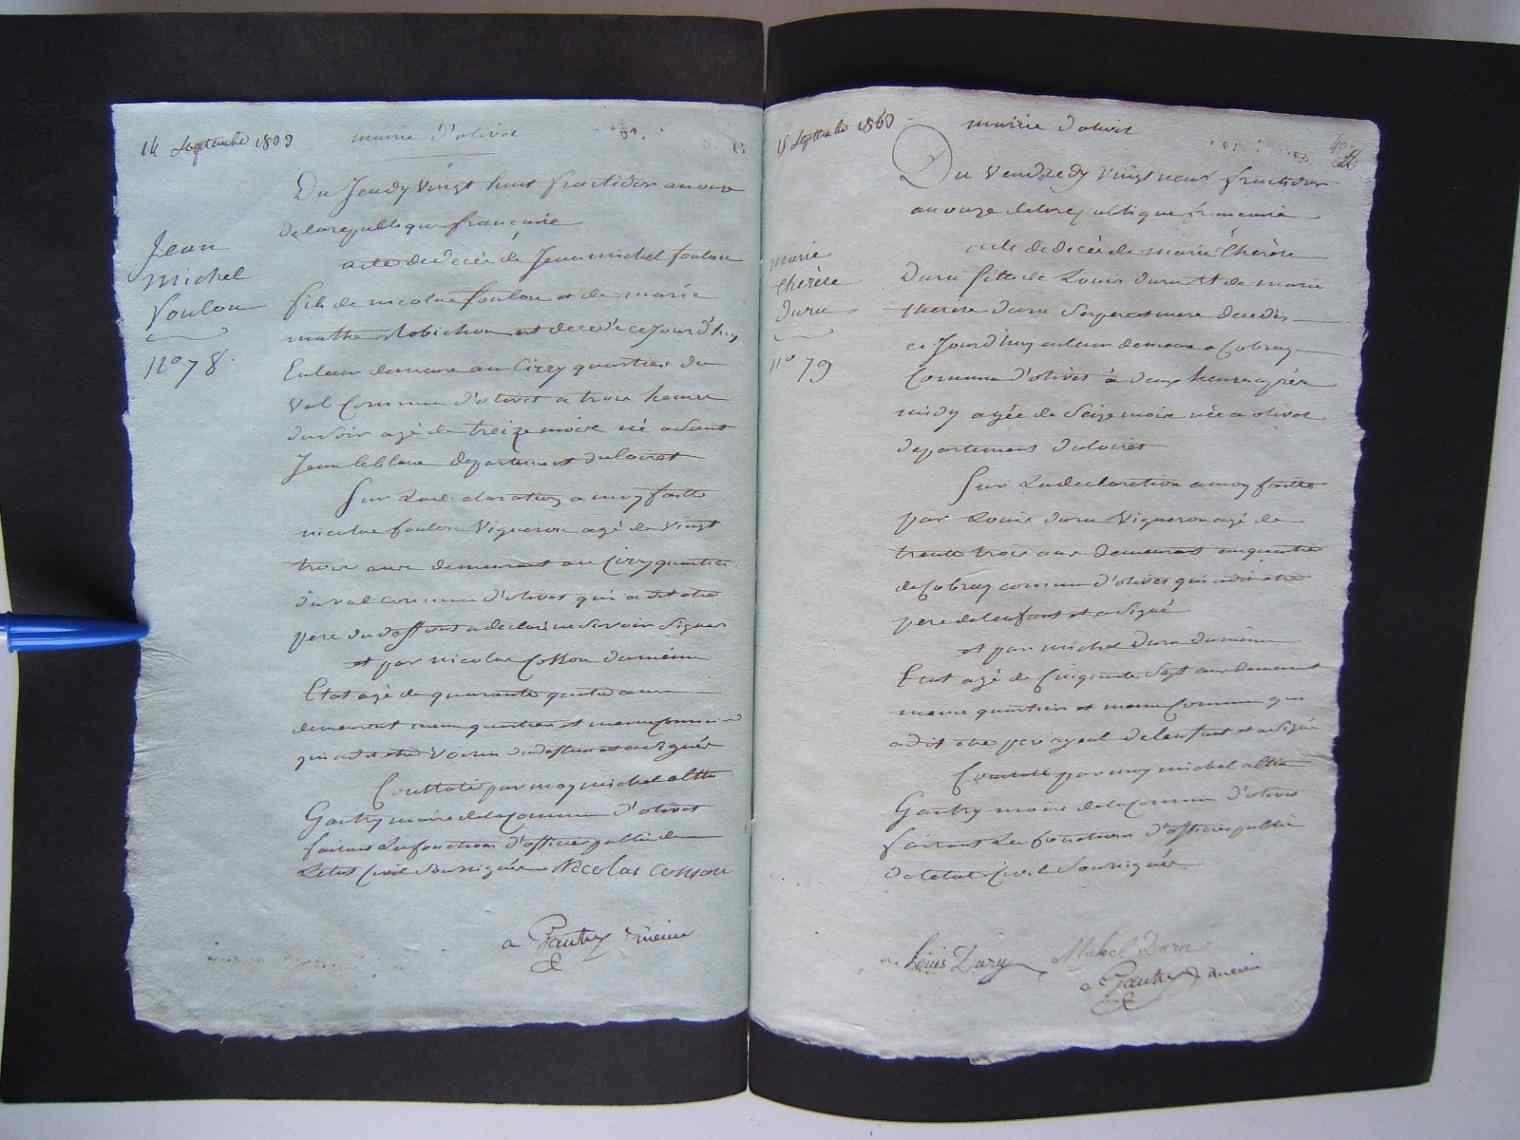 14 Septembre 1803
mairie d'olivet
Jean
michel
foulon
n° 78.
Du Jeudy vingt huit fructidor an onze
de la republique francaise
acte de décés de Jean michel foulon
fils de nicolas foulon et de marie
marthe Robichon est decedé ce jourd'huy
En leur demeure au Cizzy quartier du
val Commune d'olivet a trois heures
du soir agé de treize mois né a Saint
Jean leblanc departement du loiret
Sur la declaration a moy faitte
nicolas foulon Vigneron agé de vingt
trois ans demeurant au Cizzy quartier
du val commune d'olivet qui a dit etre
pere du deffunt a declaré ne Savoir Signer
et par nicolas Cosson du même
Etat agé de quarante quatre ans
demeurant meme quartier et meme Commune
qui a dit etre voisin du deffunt et a signé
Constaté par moy michel
Gautry maire de la commune d'olivet
faisant les fonctions d'officier public de
L'etat Civil Soussigné Nicolas cosson
Gautry maire
15 Septembre 1803
mairie d'olivet
marie
thérèse
daru
n° 79
Du Vendredy vingt neuf fructidor
an onze de la republique francaise
acte de décés de marie thérèse
daru fille de Louis daru et de marie
therese daru Ses pere et mere decedée
ce Jourd'huy en leur demeure a Cobray
Commune d'olivet à deux heures après
midy agée de Seize mois née a olivet
departement du loiret
Sur la declaration a moy faitte
par Louis daru Vigneron agé de
trente trois ans demeurant au quartier
de Cobray commune d'olivet qui a dit etre
pere de lenfant et a signé
et par michel daru du même
Etat agé de Cinquante Sept ans demeurant
meme quartier et meme Commune qui
a dit etre pere ayeul de lenfant et a signé
Constaté par moy michel
Gautry maire de la commune d'olivet
faisant les fonctions d'officier public
de letat Civil Soussigné
Louis Daru Michel Daru
Gautry maire